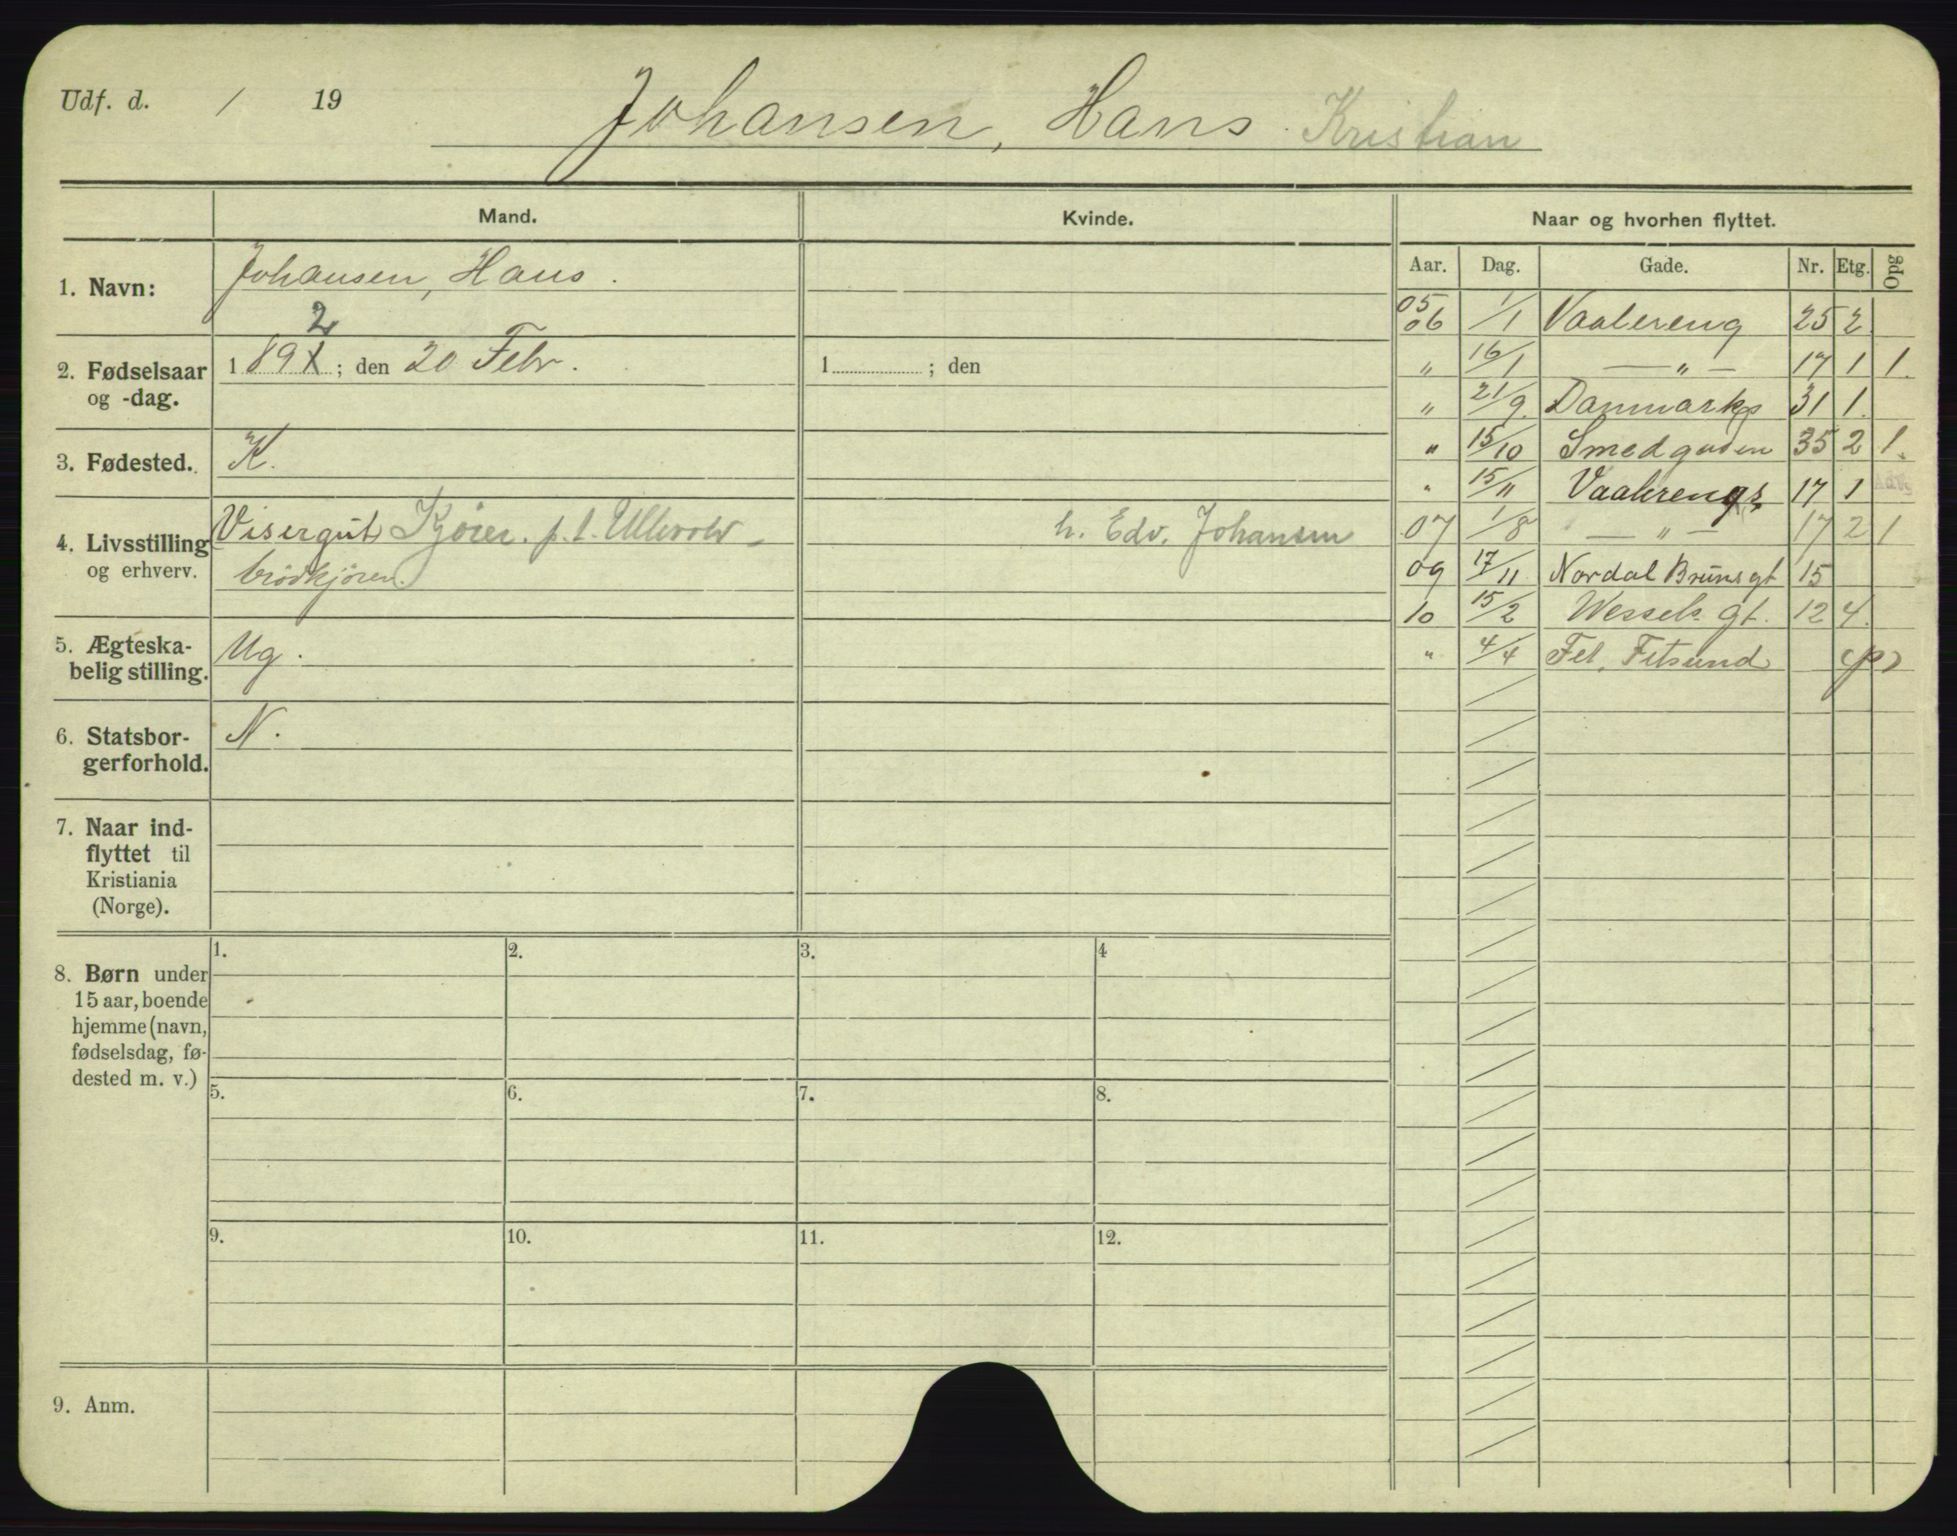 Udf. d. / 19
Johansen, Hans Kristian
Mand. Kvinde. Naar og hvorhen flyttet.
Aar. Dag. Gade. Nr. Etg. Opg
1. Navn: Johansen, Hans.
2
2. Fødselsaar og -dag. 189X; den 20 Febr. 1 ; den
3. Fødested. K.
4. Livsstilling og erhverv. Visergut Kjører. p.t. Ullevold h. Edv. Johansen
brödkjörer.
5. Ægteska-
belig stilling. Ug.
6. Statsbor-
gerforhold. N.
7. Naar ind-
flyttet til
Kristiania
(Norge).
8. Børn under
15 aar, boende
hjemme (navn,
fødselsdag, fø-
dested m. v.)
1. 2. 3. 4
5. 6. 7. 8.
9. 10. 11. 12.
9. Anm.
05
06 1/1 Vaalereng 25 2
" 16/1 — " — 17 1 1.
" 21/9. Danmarks 31 1.
" 15/10 Smedgaden 35 2 1.
" 15/11 Vaalerengs 17 1
07 1/8 — " — 17 2 1
09 17/11 Nordal Bruns gt 15
10 15/2 Wessels gt. 12 4.
" 4/4 Fet, Fetsund (p)